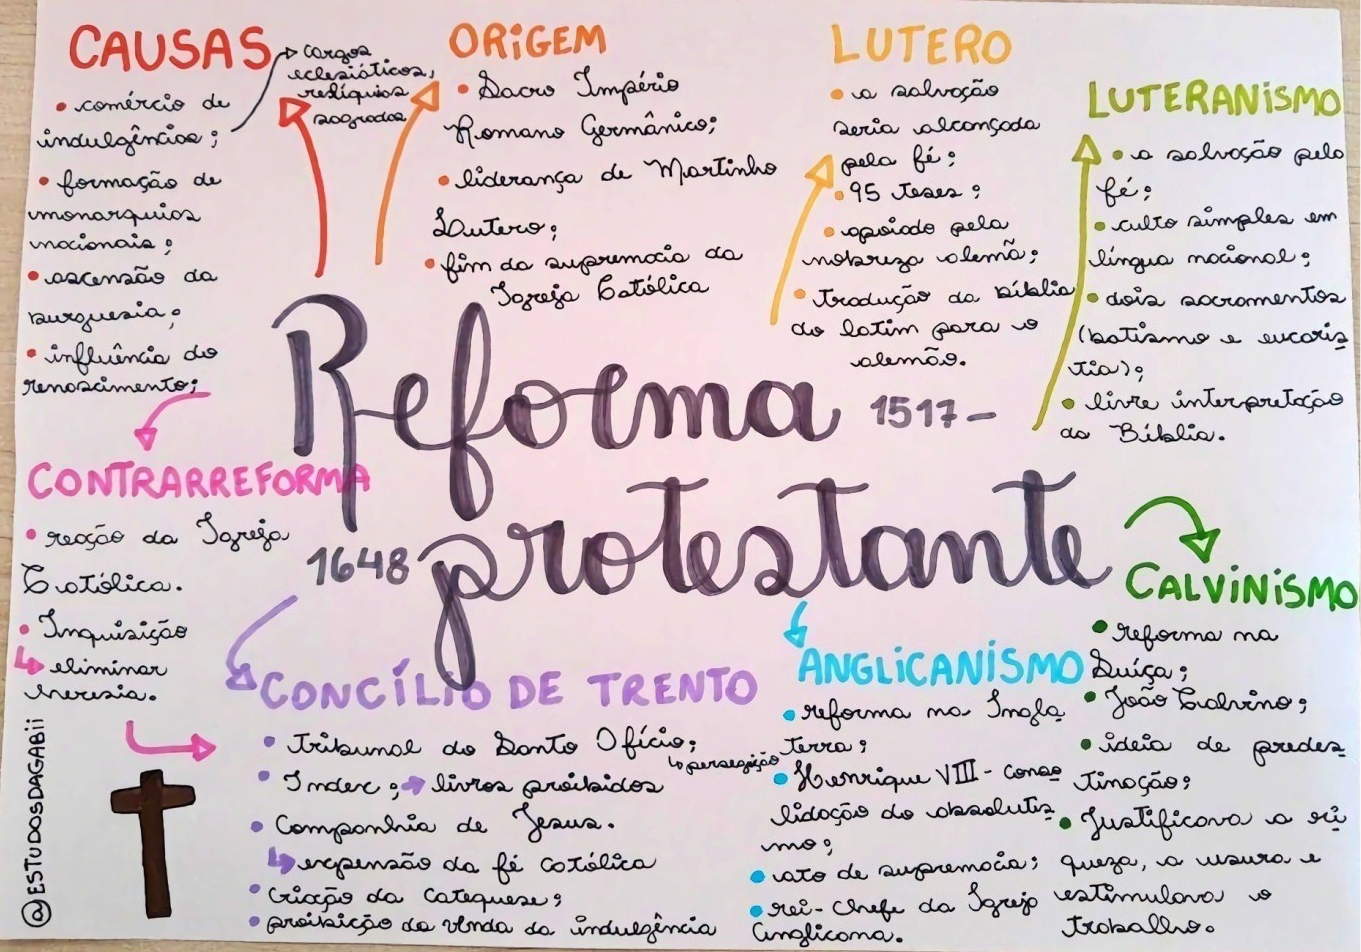 CAUSAS
• comércio de
indulgências;
cargos
eclesiáticos,
relíquias
sagradas
• formação de
monarquias
nacionais;
• ascensão da
burguesia;
• influência do
renascimento;
ORIGEM
• Sacro Império
Romano Germânico;
• liderança de Martinho
Lutero;
• fim da supremacia da
Igreja Católica
LUTERO
• a salvação
seria alcançada
pela fé;
• 95 teses;
• apoiado pela
nobreza alemã;
• tradução da bíblia
do latim para o
alemão.
LUTERANISMO
• a salvação pela
fé;
• culto simples em
língua nacional;
• dois sacramentos
(batismo e eucaris
tia);
• livre interpretação
da Bíblia.
Reforma
1517-
1648
protestante
CONTRARREFORMA
• reação da Igreja
Católica.
• Inquisição
eliminar
heresia.
CONCÍLIO DE TRENTO
• tribunal do Santo Ofício;
perseguição
• Index; livros proibidos
• Companhia de Jesus.
expensão da fé católica
• criação da catequese;
• proibição da venda da indulgência
ANGLICANISMO
• reforma na Ingla
terra;
• Henrique VIII - conso
lidação do absolutis
mo;
• ato de supremacia;
• rei-chefe da Igreja
Anglicana.
CALVINISMO
• reforma na
Suíça;
• João Calvino;
• ideia de predes
tinação;
• Justificava a ri
queza, a usura e
estimulava o
trabalho.
@ESTUDOSDAGABII